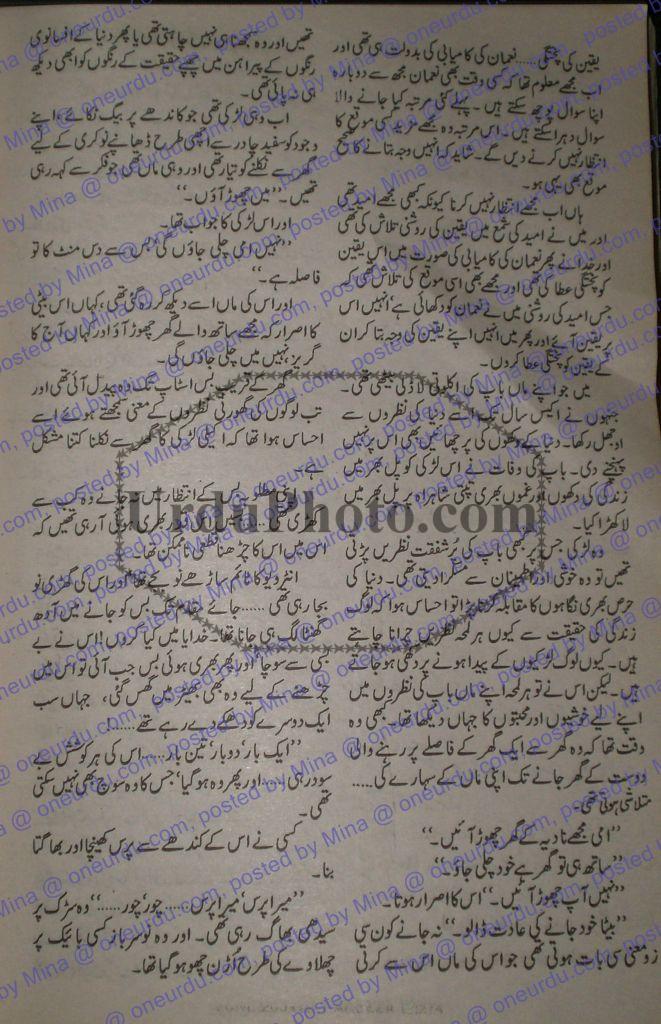 یقین کی پختگی...... نعمان کی کامیابی کی بدولت ہی تھی اور
اب مجھے معلوم تھا کہ کسی وقت بھی نعمان مجھ سے دوبارہ
اپنا سوال پوچھ سکتے ہیں۔ پہلے کئی مرتبہ کیا جانے والا
سوال دہرا سکتے ہیں۔ اس مرتبہ وہ مجھے مزید کسی موقع کا
انتظار نہیں کرنے دیں گے۔ شاید کہ انہیں وجہ بتانے کا صحیح
موقع بھی یہی ہو۔
ہاں اب مجھے انتظار نہیں کرنا کیونکہ کبھی مجھے امید تھی
اور میں نے امید کی شمع میں یقین کی روشنی تلاش کی تھی
اور خدا نے پھر نعمان کی کامیابی کی صورت میں اس یقین
کو پختگی عطا کی تھی اور مجھے بھی اسی موقع کی تلاش تھی کہ
جس امید کی روشنی میں نے نعمان کو دکھائی ہے انہیں اس
پر یقین آئے اور پھر میں انہیں اپنے یقین کی وجہ بتا کر ان
کے یقین کو پختگی عطا کر دوں۔
میں جو اپنے ماں باپ کی اکلوتی لاڈلی بیٹی تھی۔
جنہوں نے اکیس سال تک اسے دنیا کی نظروں سے
اوجھل رکھا۔ دنیا کے دکھوں کی پرچھائیں بھی اس پر نہیں
پڑنے دی۔ باپ کی وفات نے اس لڑکی کو پل بھر میں
زندگی کی دکھوں اور غموں بھری تپتی شاہراہ پر پل بھر میں
لا کھڑا کیا۔
وہ لڑکی جس پر کبھی باپ کی پُرشفقت نظریں پڑتی
تھیں تو وہ خوشی اور اطمینان سے مسکرا دیتی تھی۔ دنیا کی
حرص بھری نگاہوں کا مقابلہ کرنا پڑا تو احساس ہوا کہ لوگ
زندگی کی حقیقت سے کیوں ہر لمحہ نظریں چرانا چاہتے
ہیں۔ کیوں لوگ لڑکیوں کے پیدا ہونے پر دکھی ہو جاتے
ہیں۔ لیکن اس نے تو ہر لمحہ اپنے ماں باپ کی نظروں میں
اپنے لیے خوشیوں اور محبتوں کا جہاں دیکھا تھا۔ کبھی وہ
وقت تھا کہ وہ گھر سے ایک گھر کے فاصلے پر رہنے والی
دوست کے گھر جانے تک اپنی ماں کے سہارے کی.....
متلاشی ہوتی تھی۔
''امی مجھے نادیہ کے گھر چھوڑ آئیں۔''
''ساتھ ہی تو گھر ہے خود چلی جاؤ۔''
''نہیں آپ چھوڑ آئیں۔'' اس کا اصرار ہوتا۔
''بیٹا خود جانے کی عادت ڈالو۔'' نہ جانے کون سی
زومعنی سی بات ہوتی تھی جو اس کی ماں اس سے کرتی
تھیں اور وہ سمجھنا ہی نہیں چاہتی تھی یا پھر دنیا کے افسانوی
رنگوں کے پیراہن میں چھپے حقیقت کے رنگوں کو ابھی دیکھ
ہی نہ پائی تھی۔
اب وہی لڑکی تھی جو کاندھے پر بیگ لٹکائے، اپنے
وجود کو سفید چادر سے اچھی طرح ڈھانپے نوکری کے لیے
گھر سے نکلنے کو تیار تھی اور وہی ماں تھی جو فکر سے کہہ رہی
تھیں۔ ''میں چھوڑ آؤں۔''
اور اس لڑکی کا جواب تھا۔
''نہیں امی چلی جاؤں گی بس سے دس منٹ کا تو
فاصلہ ہے۔''
اور اس کی ماں اسے دیکھ کر رہ گئی تھی، کہاں اس بیٹی
کا اصرار کہ مجھے ساتھ والے گھر چھوڑ آؤ اور کہاں آج کا
گریز نہیں میں چلی جاؤں گی۔
گھر کے قریب بس اسٹاپ تک وہ پیدل آئی تھی اور
تب لوگوں کی گھورتی نظروں کے معنی سمجھتے ہوئے اسے
احساس ہوا تھا کہ اکیلی لڑکی کا گھر سے نکلنا کتنا مشکل
ہے۔
اپنی مطلوبہ بس کے انتظار میں نہ جانے وہ کب سے
کھڑی تھی...... بسیں اس قدر بھری ہوئی آ رہی تھیں کہ
اس میں اس کا چڑھنا قطعی ناممکن تھا۔
انٹرویو کا ٹائم ساڑھے نو بجے تھا اور اس کی گھڑی نو
بجا رہی تھی...... جائے مقام تک بس کو جانے میں آدھ
گھنٹا لگ ہی جانا تھا۔ خدایا میں کیا کروں! اس نے بے
بسی سے سوچا اور پھر بھری ہوئی بس جب آئی تو اس میں
چڑھنے کے لیے وہ بھی بھیڑ میں گھس گئی، جہاں سب
ایک دوسرے کو دھکے دے رہے تھے......!
''ایک بار' دو بار' تین بار...... اس کی ہر کوشش بے
سود رہی ..... اور پھر وہ ہو گیا' جس کا وہ سوچ بھی نہیں سکتی
تھی۔
کسی نے اس کے کندھے سے پرس کھینچا اور بھاگتا
بنا۔
''میرا پرس' میرا پرس...... چور' چور.....'' وہ سڑک پر
سیدھی بھاگ رہی تھی۔ اور وہ نوسر باز کسی بائیک پر
چھلاوے کی طرح اڑن چھو ہو گیا تھا۔
UrduPhoto.com
posted by Mina @ oneurdu.com